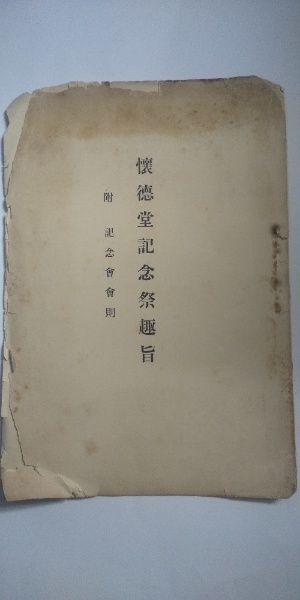 懷德堂記念祭趣旨
附 記念會會則